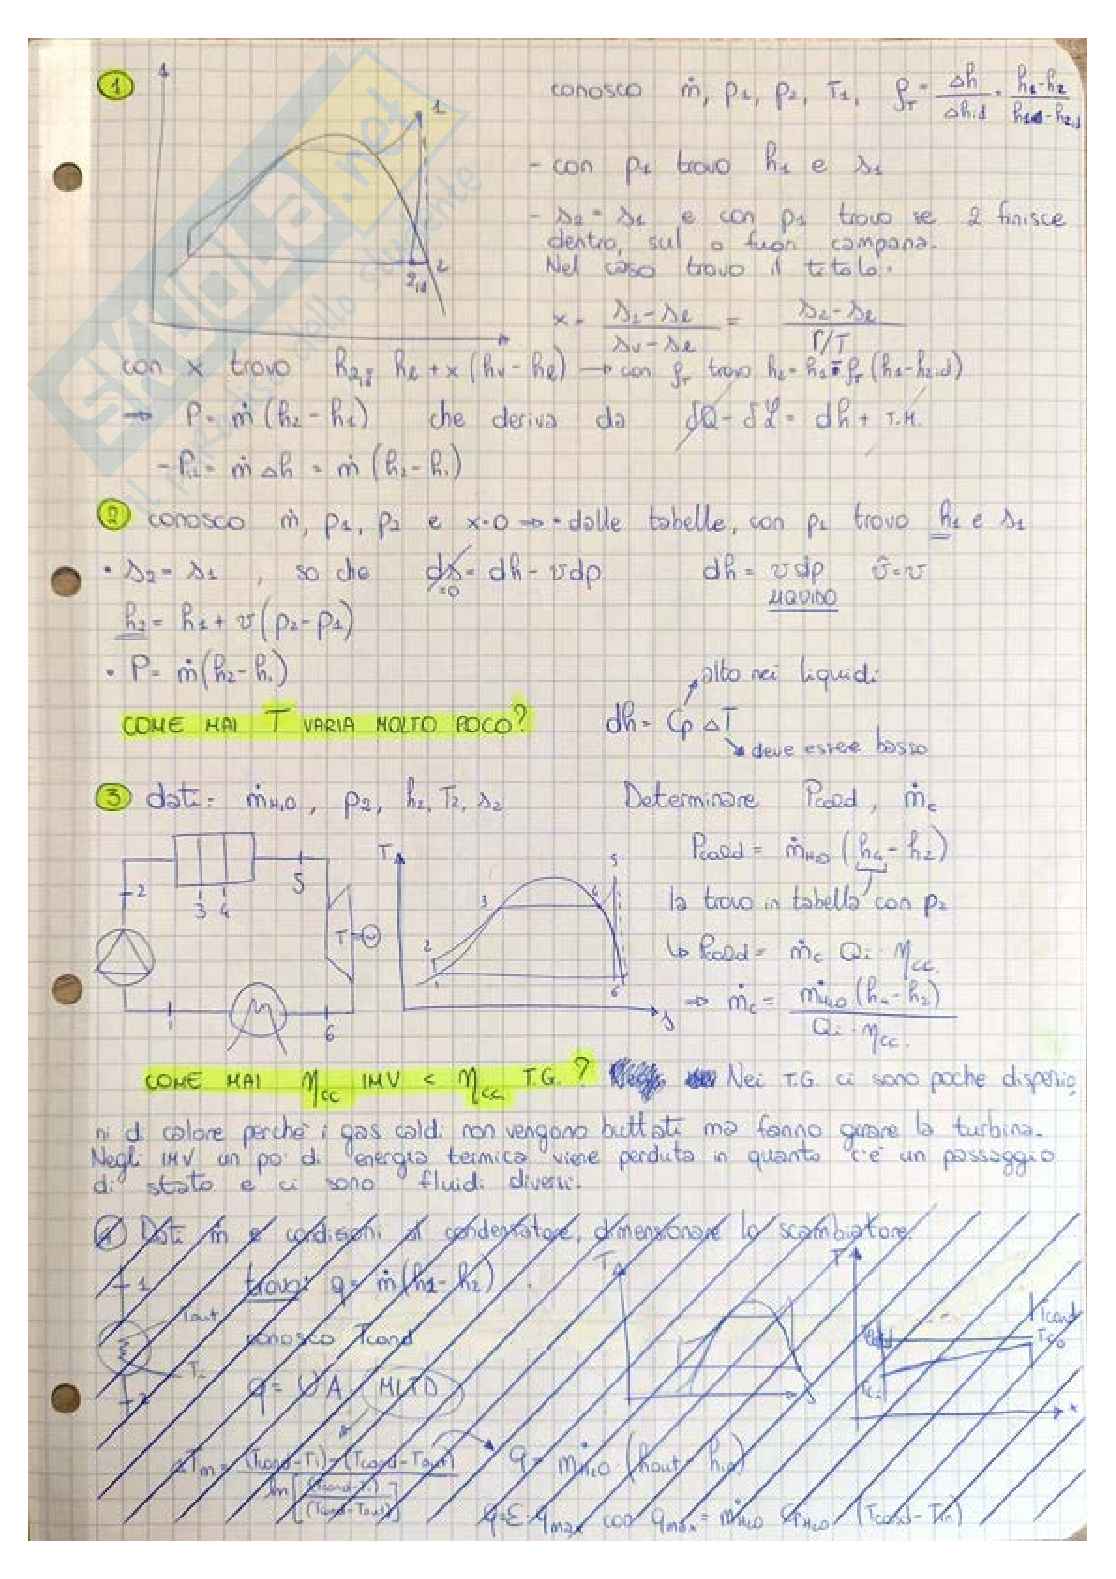 1 conosco ṁ, p1, p2, T1, ρT = Δh/Δhid = (h1-h2)/(h1-h2,id)
1
- con p1 trovo h1 e s1
- s2 = s1 e con p1 trovo se 2 finisce
dentro, sul o fuori campana.
Nel caso trovo il titolo.
2id 2
x = (s2-se)/(sv-se) = (s2-se)/(r/T)
con x trovo h2,id = he + x (hv - he) → con ρT trovo h2 = h1 - ρT (h1-h2id)
⇒ P = ṁ (h2 - h1) che deriva da δQ - δL = dh + T.M.
- Pi = ṁ Δh = ṁ (h2 - h1)
2 conosco ṁ, p1, p2 e x=0 ⇒ • dalle tabelle, con p1 trovo h1 e s1
• s2 = s1, so che ds = dh - vdp dh = vdp ṽ=v
=0 LIQUIDO
h2 = h1 + v (p2 - p1)
• P = ṁ (h2 - h1)
alto nei liquidi
COME MAI T VARIA MOLTO POCO? dh = Cp ΔT
deve essere basso
3 dati: ṁH2O, p2, h2, T2, s2 Determinare Pcald, ṁc
Pcald = ṁH2O (h4 - h2)
2 3 4 5 T T 3 4 5
la trovo in tabella con p2
2 1 6
↳ Pcald = ṁc Qi · ηcc
1 6 s
⇒ ṁc = ṁH2O (h4 - h2) / (Qi · ηcc)
COME MAI ηcc IMV < ηcc T.G.? Nei T.G. ci sono poche dispersio
ni di calore perché i gas caldi non vengono buttati ma fanno girare la turbina.
Negli IMV un po' di energia termica viene perduta in quanto c'è un passaggio
di stato e ci sono fluidi diversi.
4 Dati ṁ e condisioni al condensatore, dimensionare lo scambiatore.
1 trovo: q = ṁ (h1 - h2) T T
Tout conosco Tcond Tcond
2 q = UA MLTD s x
ΔTm = ((Tcond - Ti) - (Tcond - Tout)) / ln[(Tcond - Ti)/(Tcond - Tout)] q = ṁH2O (hout - hin)
q = ε · qmax con qmax = ṁH2O CpH2O (Tcond - Tin)
SKUOLA.net
il paradiso dello studente